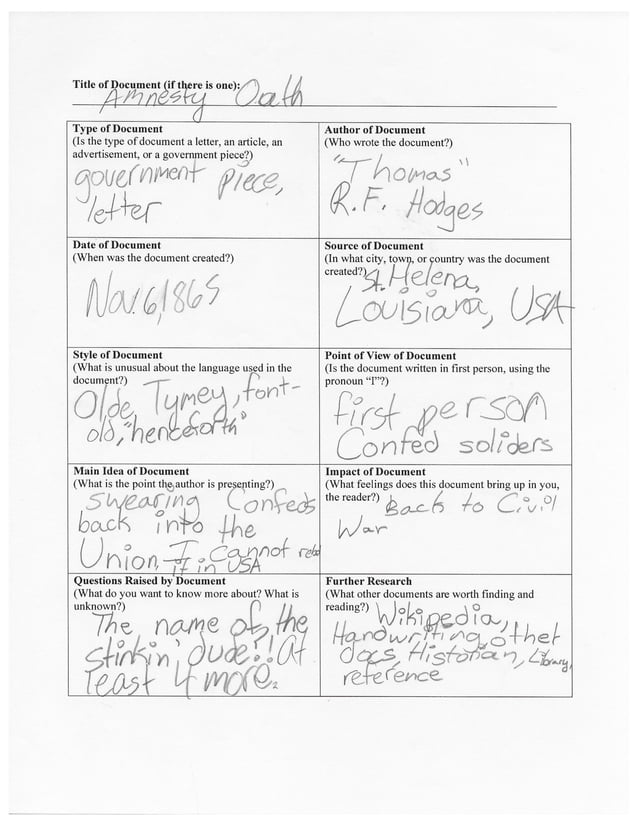 Title of Document (if there is one):
Amnesty Oath
Type of Document
(Is the type of document a letter, an article, an
advertisement, or a government piece?)
government piece,
letter
Author of Document
(Who wrote the document?)
"Thomas"
R.F. Hodges
Date of Document
(When was the document created?)
Nov. 6, 1865
Source of Document
(In what city, town, or country was the document
created?) St. Helena,
Louisiana, USA
Style of Document
(What is unusual about the language used in the
document?)
Olde Tymey, font-
old, "henceforth"
Point of View of Document
(Is the document written in first person, using the
pronoun "I"?)
first person
Confed soliders
Main Idea of Document
(What is the point the author is presenting?)
swearing Confeds
back into the
Union, I cannot rebel
if in USA
Impact of Document
(What feelings does this document bring up in you,
the reader?) Back to Civil
War
Questions Raised by Document
(What do you want to know more about? What is
unknown?)
The name of the
stinkin' dude?! At
least 4 more.
Further Research
(What other documents are worth finding and
reading?) Wikipedia,
Handwriting, other
docs, Historian, Library,
reference